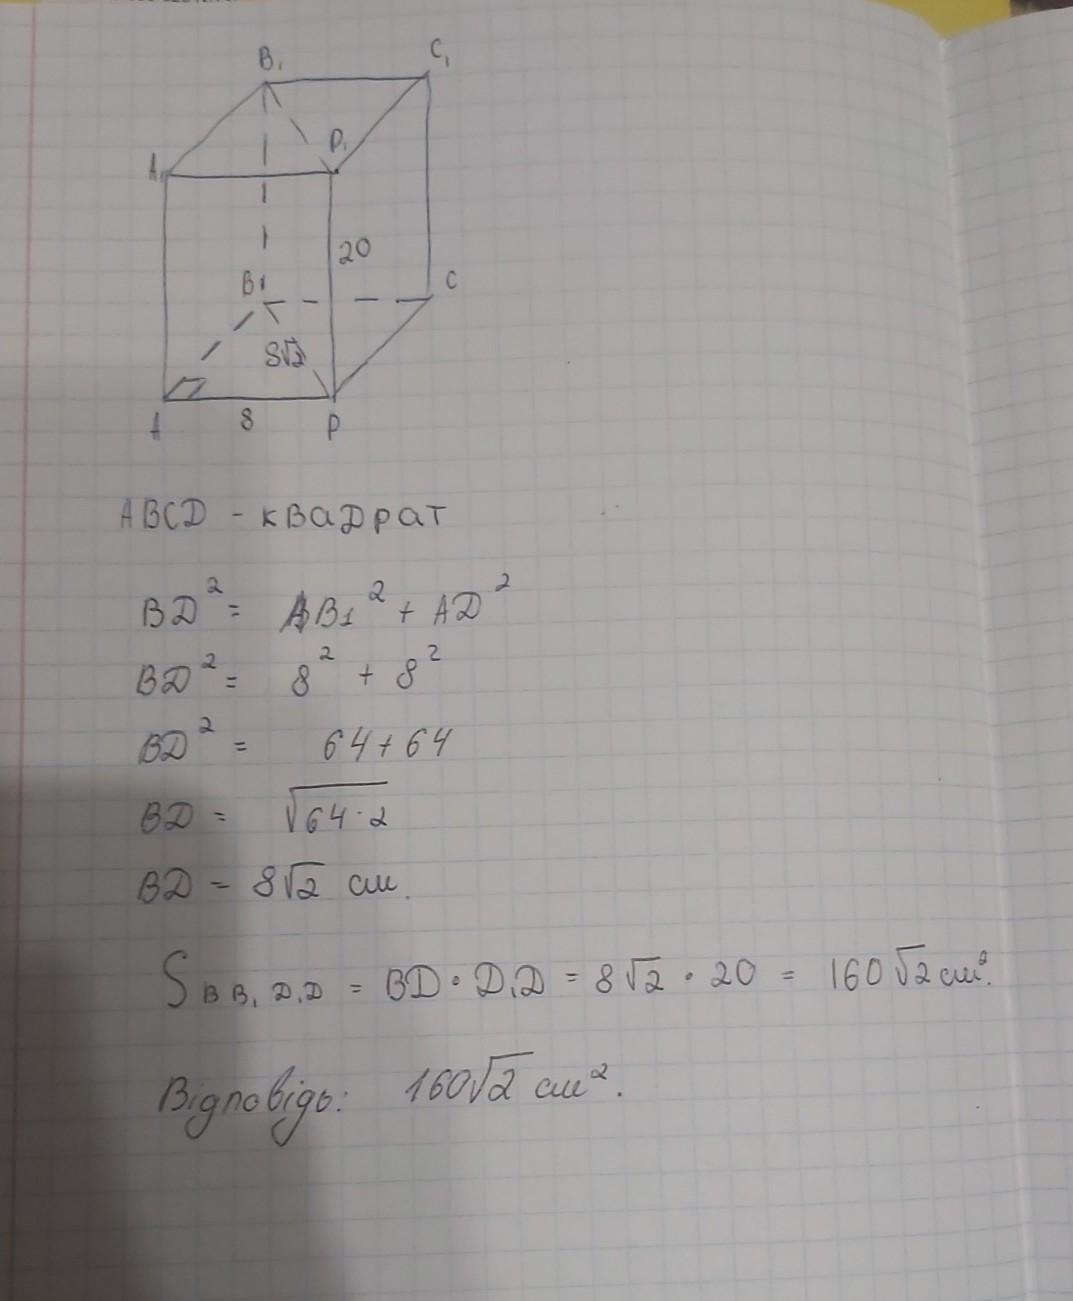 B₁
C₁
D₁
A₁
20
B1
C
8√2
A
8
D
ABCD - квадрат
BD² = AB₁² + AD²
BD² = 8² + 8²
BD² = 64 + 64
BD = √64·2
BD = 8√2 см.
S BB₁D₁D = BD · D₁D = 8√2 · 20 = 160√2 см².
Відповідь: 160√2 см².